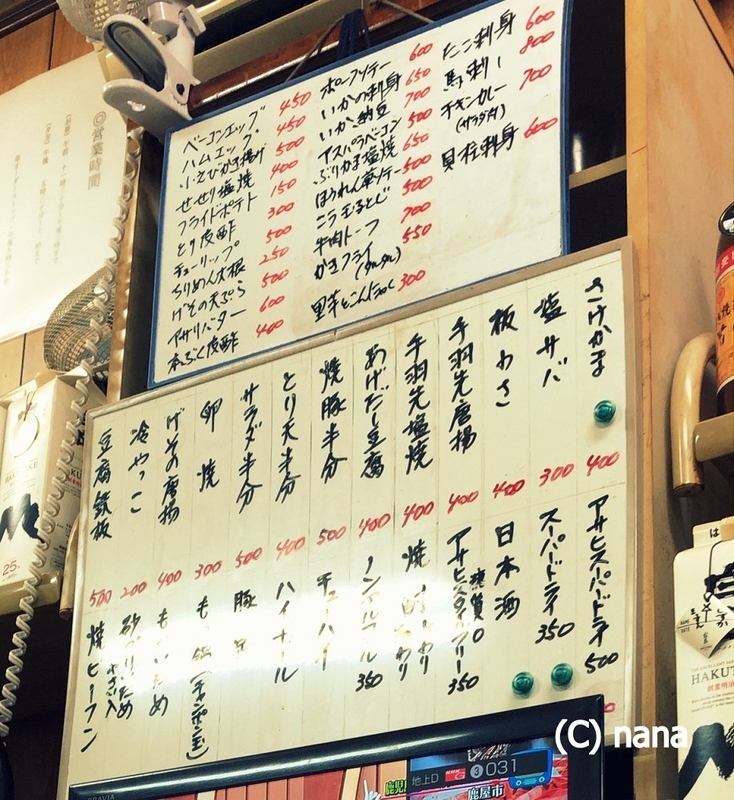 ◎営業時間
ベーコンエッグ 450
ハムエッグ 450
小えびかき揚げ 500
せせり塩焼 400
フライドポテト 150
とり皮酢 300
チューリップ 500
ちりめん大根 250
げその天ぷら 500
アサリバター 600
本ふぐ皮酢 400
ポークソテー 600
いかの刺身 650
いか納豆 700
アスパラベーコン 500
ぶりかま塩焼 650
ほうれん草ソテー 500
こう玉とじ 500
牛肉トーフ 700
かきフライ 550
(タルタル)
里芋とこんにゃく 300
たこ刺身 600
馬刺し 800
チキンカレー 700
(サラダ付)
貝柱刺身 600
さけかま 400
塩サバ 300
板わさ 400
手羽先唐揚 400
手羽先塩焼 400
あげだし豆腐 400
焼豚半分 500
とり天半分 400
サラダ半分 500
卵焼 300
げその唐揚 400
冷やっこ 200
豆腐鉄板 500
アサヒスーパードライ 500
スーパードライ 350
日本酒
糖質0
アサヒスタイルフリー 350
ノンアルコール 350
チューハイ
ハイボール
焼ビーフン
地上D
031
鹿屋市
BRAVIA
HAKUTAKE
25
(C) nana